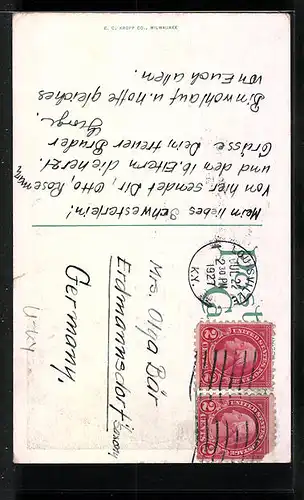 E. C. KROPP CO., MILWAUKEE
Mein liebes Schwesterlein!
Von hier sendet Dir, Otto, Rosemarie
und dem lb. Eltern die herzl.
Grüsse Dein treuer Bruder
Bin wohlauf u. hoffe gleiches
von Euch allen.
Post
Ca
JUL 22
2 30 PM
1927
KY.
Mrs. Olga Bär
Erdmannsdorf
Germany.
UNITED STATES POSTAGE
2 CENTS 2
UNITED STATES POSTAGE
2 CENTS 2